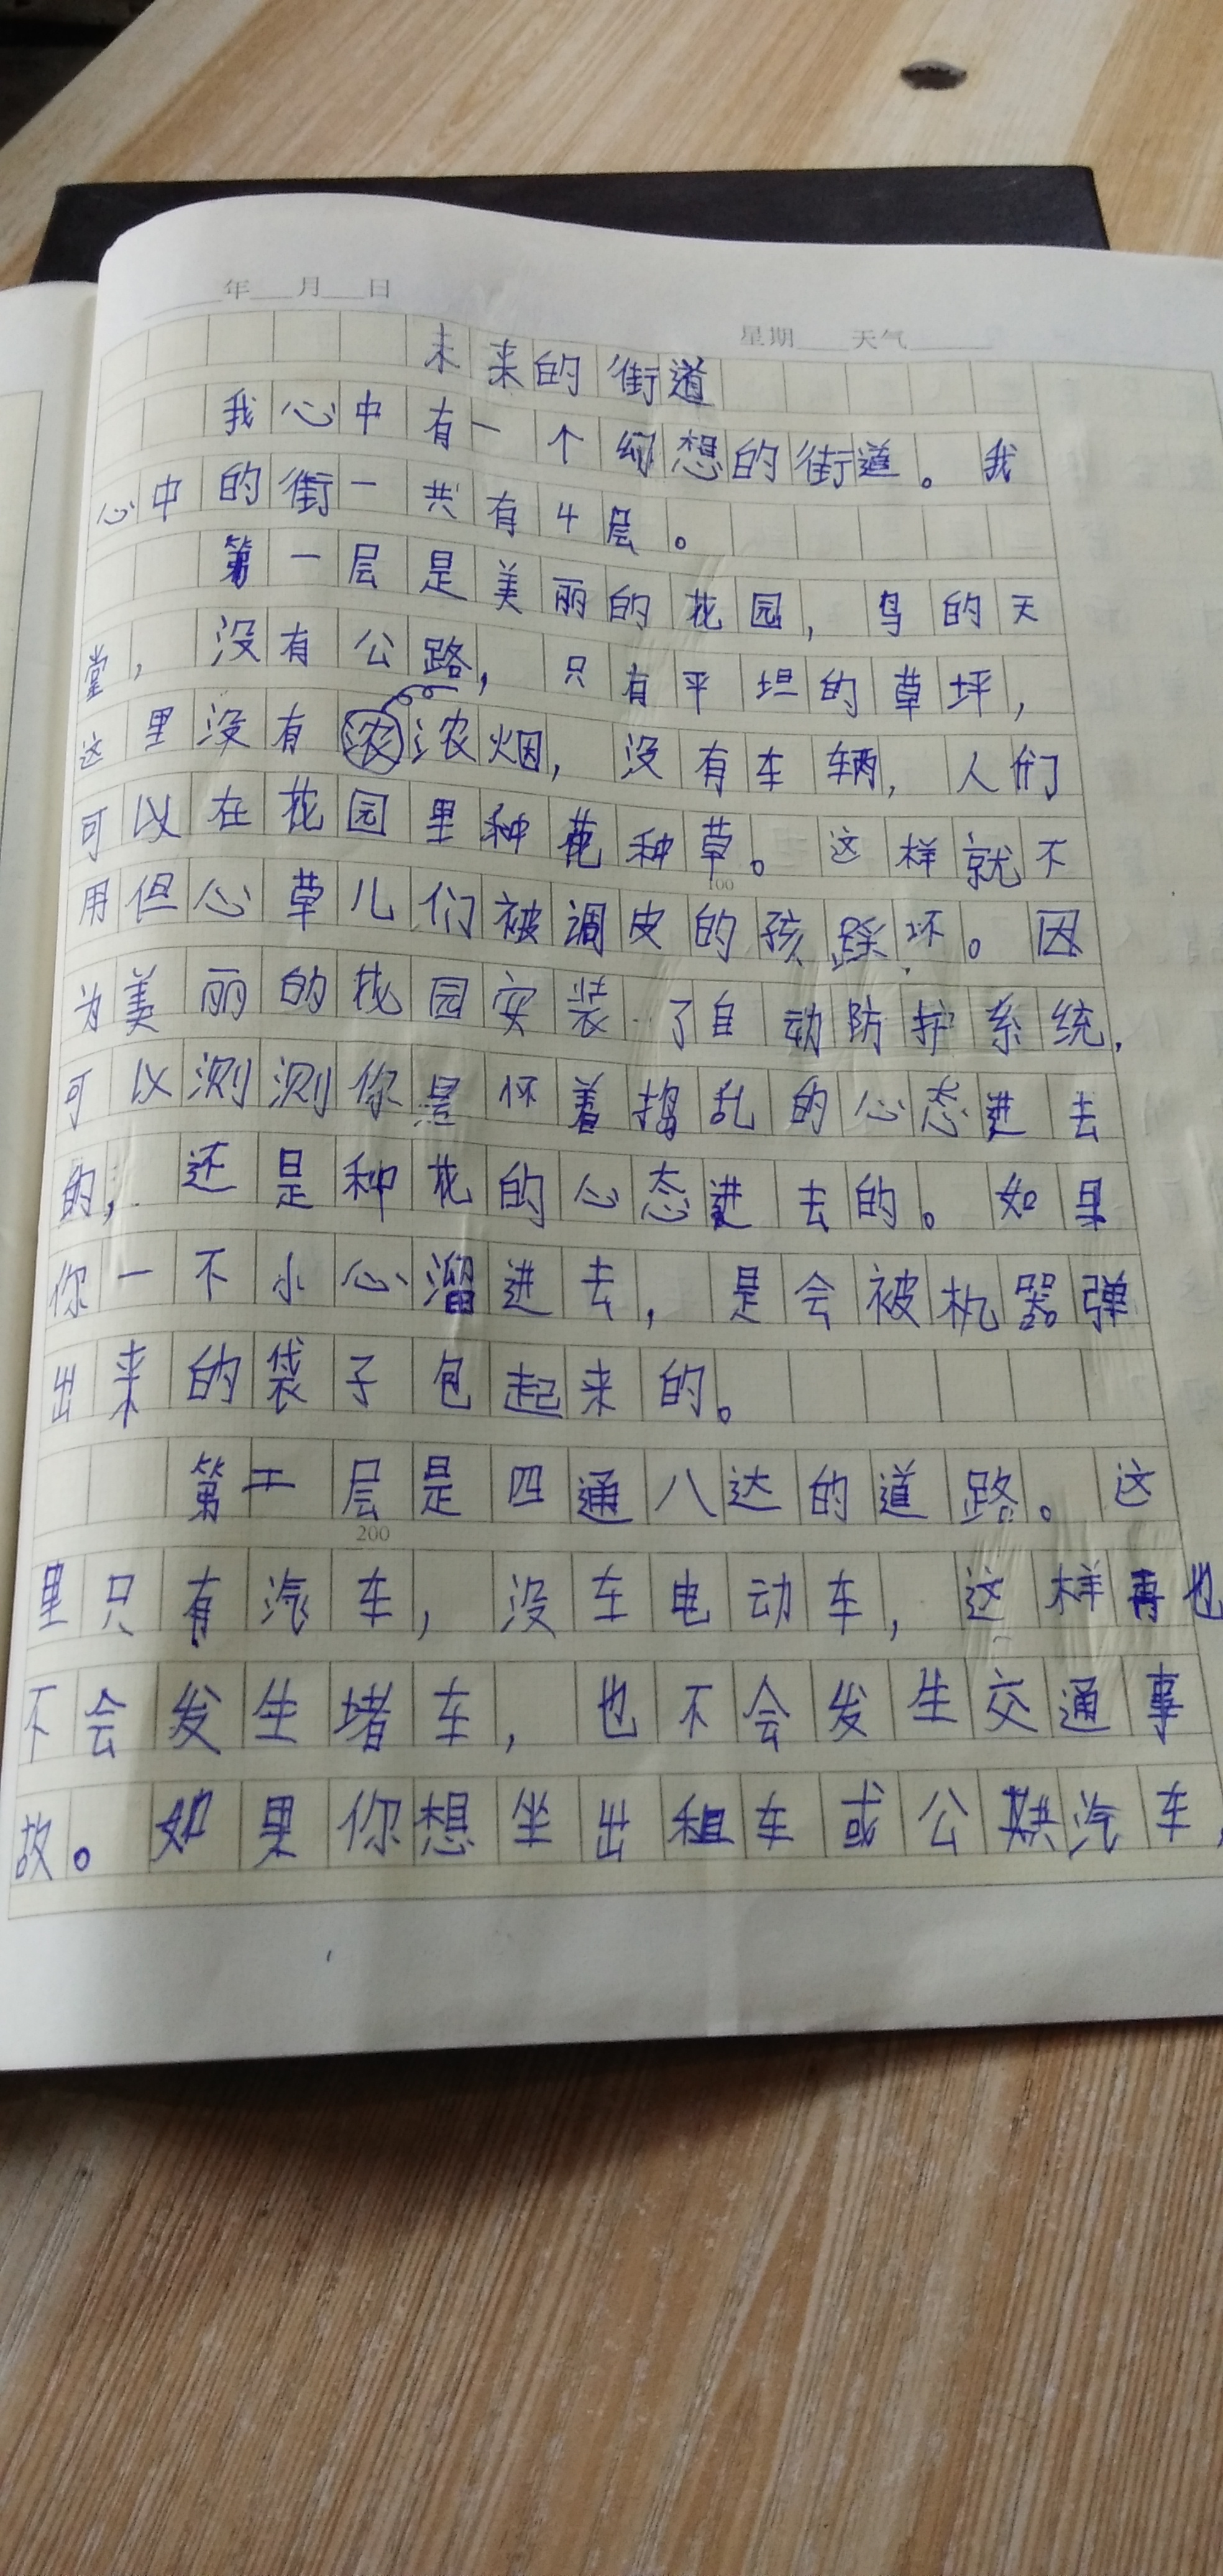 年 月 日
星期 天气
未来的街道
我心中有一个幻想的街道。我
心中的街一共有4层。
第一层是美丽的花园，鸟的天
堂，没有公路，只有平坦的草坪，
这里没有浓烟，没有车辆，人们
可以在花园里种花种草。这样就不
100
用但心草儿们被调皮的孩踩坏。因
为美丽的花园安装了自动防护系统，
可以测测你是怀着捣乱的心态进去
的，还是种花的心态进去的。如果
你一不小心溜进去，是会被机器弹
出来的袋子包起来的。
第二层是四通八达的道路。这
200
里只有汽车，没车电动车，这样再也
不会发生堵车，也不会发生交通事
故。如果你想坐出租车或公共汽车，